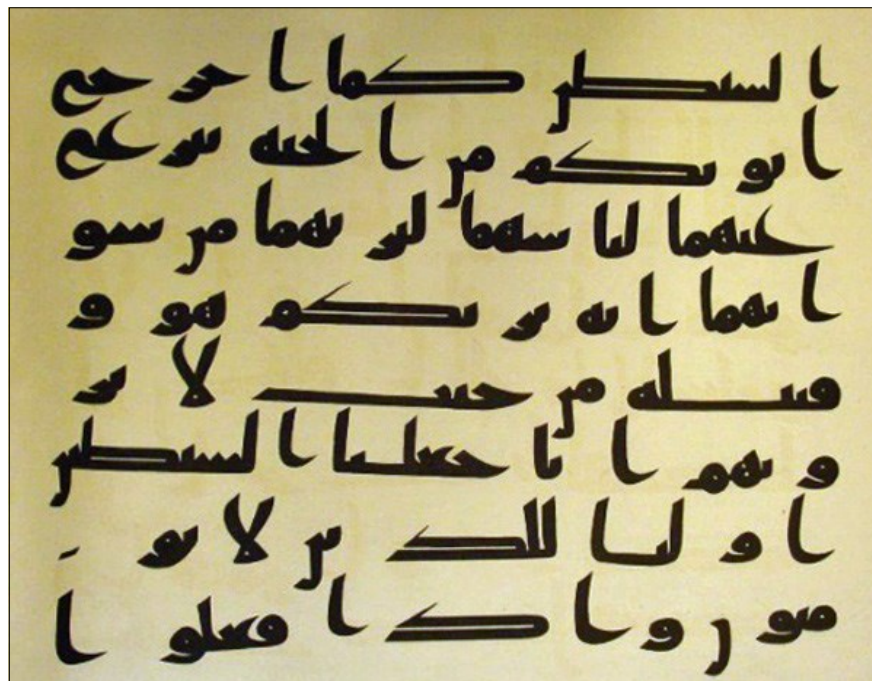 الشيطن كما اخرج
ابويكم من الجنة ينزع
عنهما لباسهما ليريهما من سو
اتهما انه يريكم هو و
قبيله من حيث لا تر
ونهم انا جعلنا الشيطين
اوليا للذين لا يو
منون واذا فعلوا